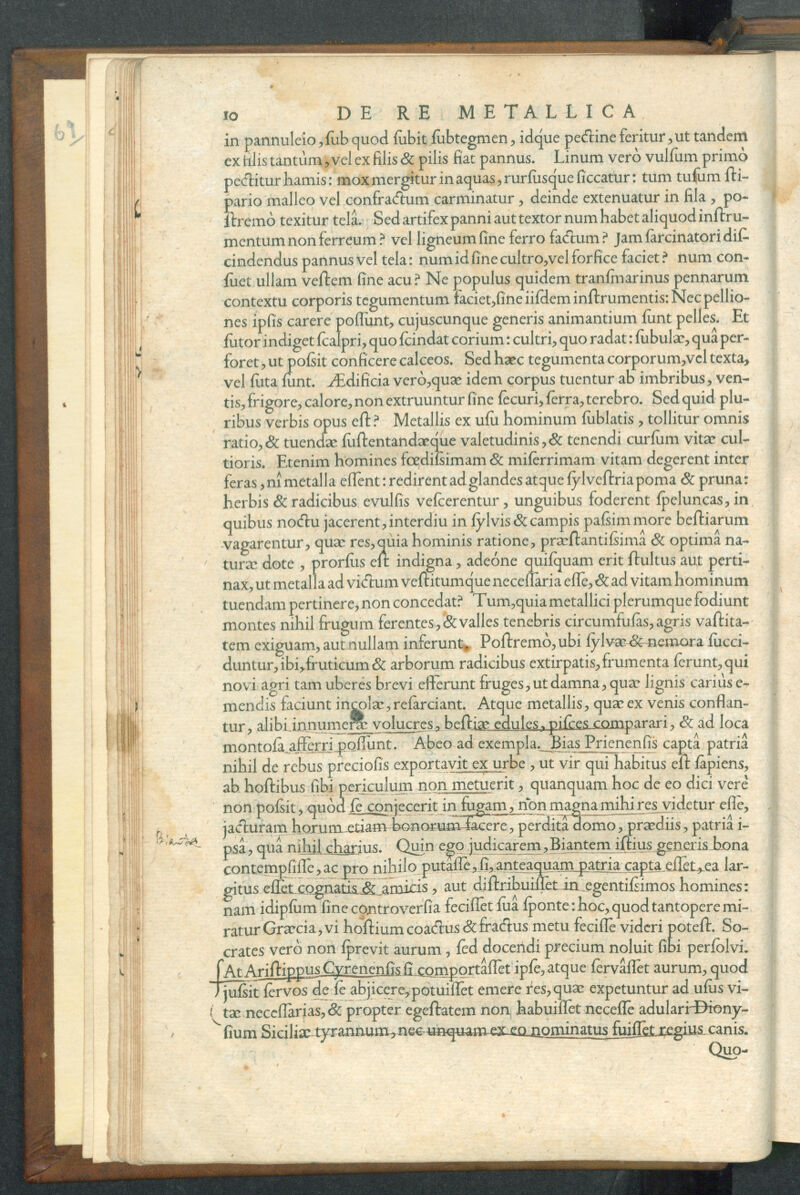 69
10 DE RE METALLICA
in pannuleio, ſub quod ſubit ſubtegmen, idque pectine feritur, ut tandem
ex filis tantùm, vel ex filis & pilis fiat pannus. Linum verò vulſum primò
pectitur hamis: mox mergitur in aquas, rurſusque ſiccatur: tum tuſum ſti-
pario malleo vel confractum carminatur, deinde extenuatur in fila, po-
ſtremò texitur telâ. Sed artifex panni aut textor num habet aliquod inſtru-
mentum non ferreum? vel ligneum ſine ferro factum? Jam ſarcinatori diſ-
cindendus pannus vel tela: num id ſine cultro, vel forfice faciet? num con-
ſuet ullam veſtem ſine acu? Ne populus quidem tranſmarinus pennarum
contextu corporis tegumentum faciet, ſine iiſdem inſtrumentis: Nec pellio-
nes ipſis carere poſſunt, cujuscunque generis animantium ſunt pelles. Et
ſutor indiget ſcalpri, quo ſcindat corium: cultri, quo radat: ſubulæ, quâ per-
foret, ut poſsit conficere calceos. Sed hæc tegumenta corporum, vel texta,
vel ſuta ſunt. Ædificia verò, quæ idem corpus tuentur ab imbribus, ven-
tis, frigore, calore, non extruuntur ſine ſecuri, ſerra, terebro. Sed quid plu-
ribus verbis opus eſt? Metallis ex uſu hominum ſublatis, tollitur omnis
ratio, & tuendæ ſuſtentandæque valetudinis, & tenendi curſum vitæ cul-
tioris. Etenim homines fœdiſsimam & miſerrimam vitam degerent inter
feras, nî metalla eſſent: redirent ad glandes atque ſylveſtria poma & pruna:
herbis & radicibus evulſis veſcerentur, unguibus foderent ſpeluncas, in
quibus noctu jacerent, interdiu in ſylvis & campis paſsim more beſtiarum
vagarentur, quæ res, quia hominis ratione, præſtantiſsimâ & optimâ na-
turæ dote, prorſus eſt indigna, adeóne quiſquam erit ſtultus aut perti-
nax, ut metalla ad victum veſtitumque neceſſaria eſſe, & ad vitam hominum
tuendam pertinere, non concedat? Tum, quia metallici plerumque fodiunt
montes nihil frugum ferentes, & valles tenebris circumfuſas, agris vaſtita-
tem exiguam, aut nullam inferunt. Poſtremò, ubi ſylvæ & nemora ſucci-
duntur, ibi, fruticum & arborum radicibus extirpatis, frumenta ſerunt, qui
novi agri tam uberes brevi efferunt fruges, ut damna, quæ lignis cariùs e-
mendis faciunt incolæ, reſarciant. Atque metallis, quæ ex venis conflan-
tur, alibi innumeræ volucres, beſtiæ edules, piſces comparari, & ad loca
montoſa afferri poſſunt. Abeo ad exempla. Bias Prienenſis captâ patriâ
nihil de rebus precioſis exportavit ex urbe, ut vir qui habitus eſt ſapiens,
ab hoſtibus ſibi periculum non metuerit, quanquam hoc de eo dici verè
non poſsit, quòd ſe conjecerit in fugam, non magna mihi res videtur eſſe,
jacturam horum etiam bonorum facere, perditâ domo, prædiis, patriâ i-
psâ, quâ nihil charius. Quin ego judicarem, Biantem iſtius generis bona
contempſiſſe, ac pro nihilo putâſſe, ſi, anteaquam patria capta eſſet, ea lar-
gitus eſſet cognatis & amicis, aut diſtribuiſſet in egentiſsimos homines:
nam idipſum ſine controverſia feciſſet ſuâ ſponte: hoc, quod tantopere mi-
ratur Græcia, vi hoſtium coactus & fractus metu feciſſe videri poteſt. So-
crates verò non ſprevit aurum, ſed docendi precium noluit ſibi perſolvi.
At Ariſtippus Cyrenenſis ſi comportâſſet ipſe, atque ſervâſſet aurum, quod
juſsit ſervos de ſe abjicere, potuiſſet emere res, quæ expetuntur ad uſus vi-
tæ neceſſarias, & propter egeſtatem non habuiſſet neceſſe adulari Diony-
ſium Siciliæ tyrannum, nec unquam ex eo nominatus fuiſſet regius canis.
Quo-